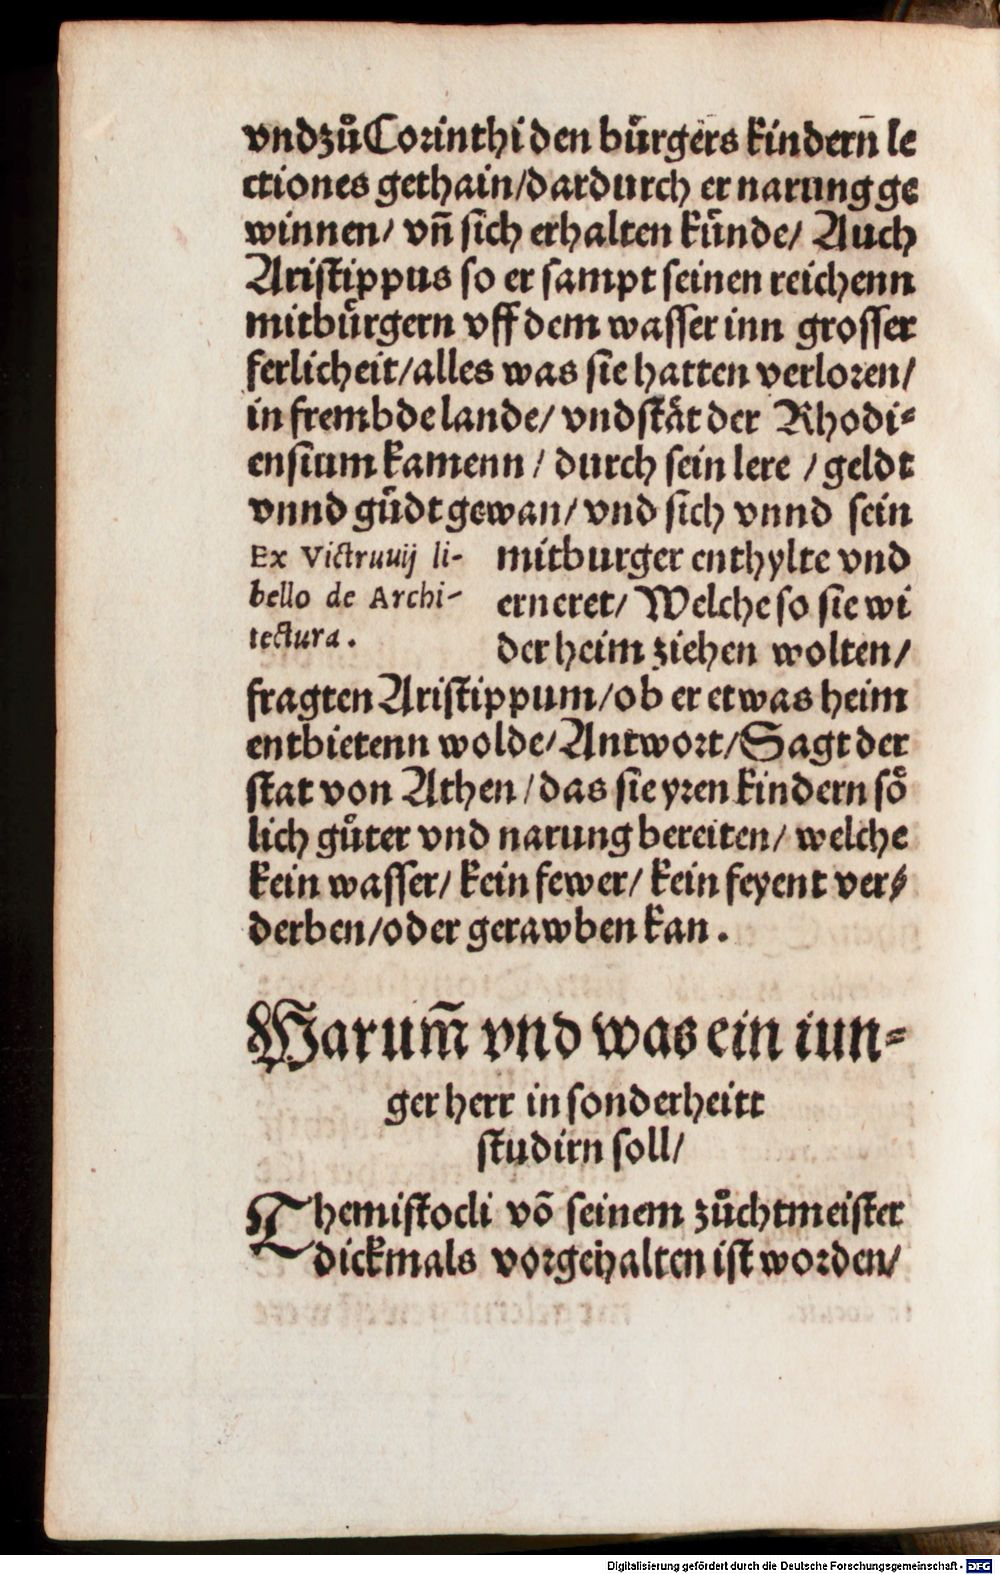 vndzů Corinthi den bůrgers kindern̄ le
ctiones gethain/dardurch er narung ge
winnen/ vn̄ sich erhalten kůnde/ Auch
Aristippus so er sampt seinen reichenn
mitbůrgern vff dem wasser inn grosser
ferlicheit/alles was sie hatten verloren/
in frembde lande/ vnd stät der Rhodi-
ensium kamenn / durch sein lere / geldt
vnnd gůdt gewan/ vnd sich vnnd sein
Ex Victruuij li-
bello de Archi-
tectura.
mitburger enthylte vnd
erneret/ Welche so sie wi
der heim ziehen wolten/
fragten Aristippum/ob er etwas heim
entbietenn wolde/Antwort/Sagt der
stat von Athen/das sie yren kindern sö
lich gůter vnd narung bereiten/ welche
kein wasser/ kein fewer/ kein feyent ver-
derben/oder gerawben kan.
Warum̄ vnd was ein iun-
ger herr in sonderheitt
studirn soll/
Themistocli vō seinem zůchtmeister
dickmals vorgehalten ist worden/
Digitalisierung gefördert durch die Deutsche Forschungsgemeinschaft - DFG